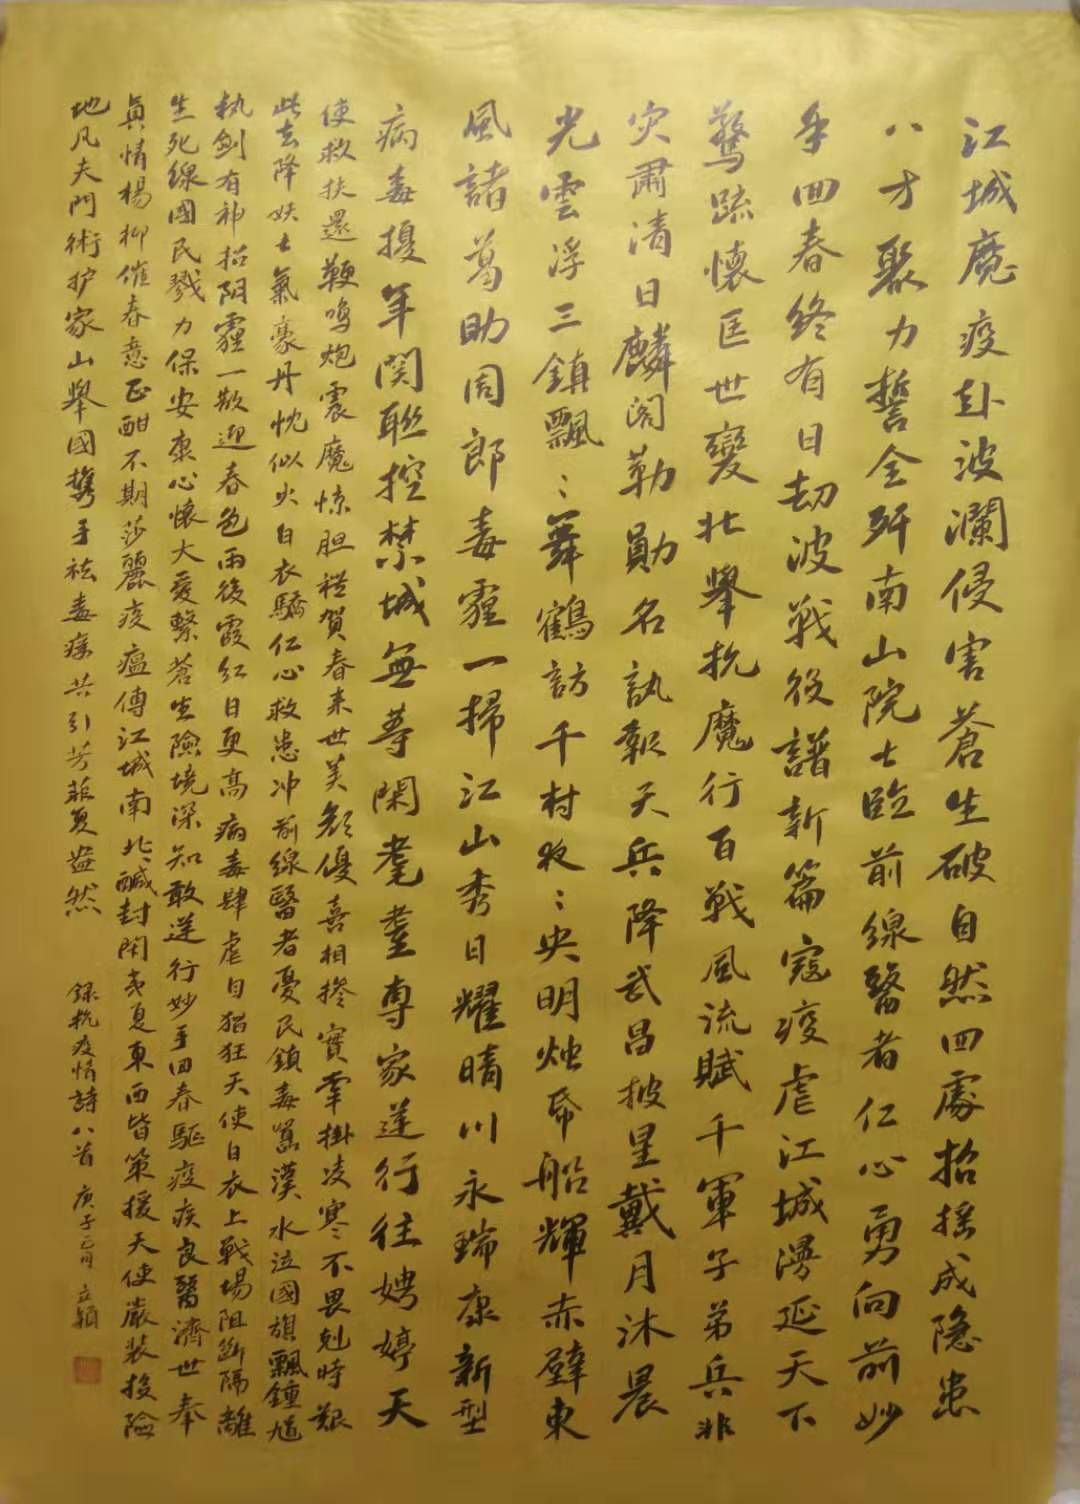 江城魔疫卦波瀾侵害蒼生破自然四處招搖成隐患
八方聚力誓全歼南山院士臨前線醫者仁心勇向前妙
手回春終有日劫波戰後譜新篇寇疫虐江城漫延天下
驚疏懷匡世變北舉抗魔行百戰風流賦千軍子弟兵非
灾肅清日麟阁勒勛名訊報天兵降武昌披星戴月沐晨
光雲浮三鎮飄〻舞鶴訪千村夜〻央明燭帛船輝赤壁東
風諸葛助周郎毒霾一掃江山秀日耀晴川永瑞康新型
病毒擾年関联控禁城無等閑耄耋專家逆行往娉婷天
使救扶還鞭鸣炮震魔惊胆礼賀春来世美顔優喜相擁實牽掛凌寒不畏剋時艱
此去降妖士氣豪丹忱似火白衣驕仁心救患冲前線醫者憂民鎮毒嚣漢水泣國旗飄鍾馗
執劍有神招阴霾一散迎春色雨後霞红日更高病毒肆虐自猖狂天使白衣上戰場阻断隔離
生死線國民戮力保安康心懷大愛繫蒼生險境深知敢逆行妙手回春駆疫疾良醫濟世奉
真情楊柳催春意正酣不期莎麗疫瘟傳江城南北緘封閉夷夏東西皆策援天使嚴装投險
地凡夫門術护家山舉國携手祛毒瘼共引芳菲夏盎然
録抗疫情詩八首 庚子二月 立穎